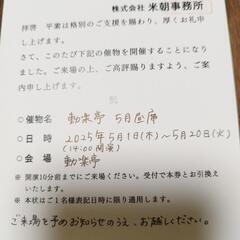 株式会社 米朝事務所
拝啓 平素は格別のご支援を賜わり、厚くお礼申
し上げます。
さて、このたび下記の催物を開催することになり
ました。ご来場の上、ご高評賜りますよう、ご案
内申し上げます。
記
○催物名 動楽亭 5月昼席
○日 時 2025年5月1日(木)~5月20日(火)
(14:00開演)
○会 場 動楽亭
※ 開演10分前までにご来場ください。受付で本券とお引換え
いたします。
※本状はご1名様表記日時に限り通用します。
ご来場を予めお知らせのうえ、お越しください。